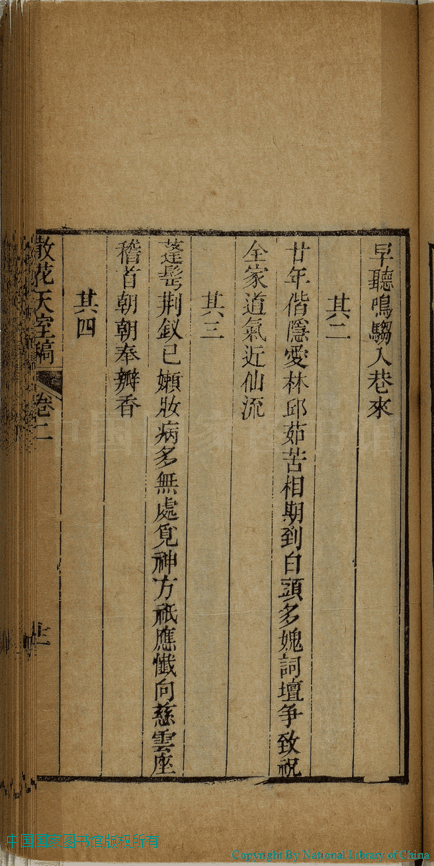 早聽鳴騶入巷來
其二
廿年偕隱愛林邱茹苦相期到白頭多媿詞壇爭致祝
全家道氣近仙流
其三
蓬髩荆釵已嬾妝病多無處覓神方祇應懺向慈雲座
稽首朝朝奉瓣香
其四
散花天室稿 卷二
Copyright By National Library of China